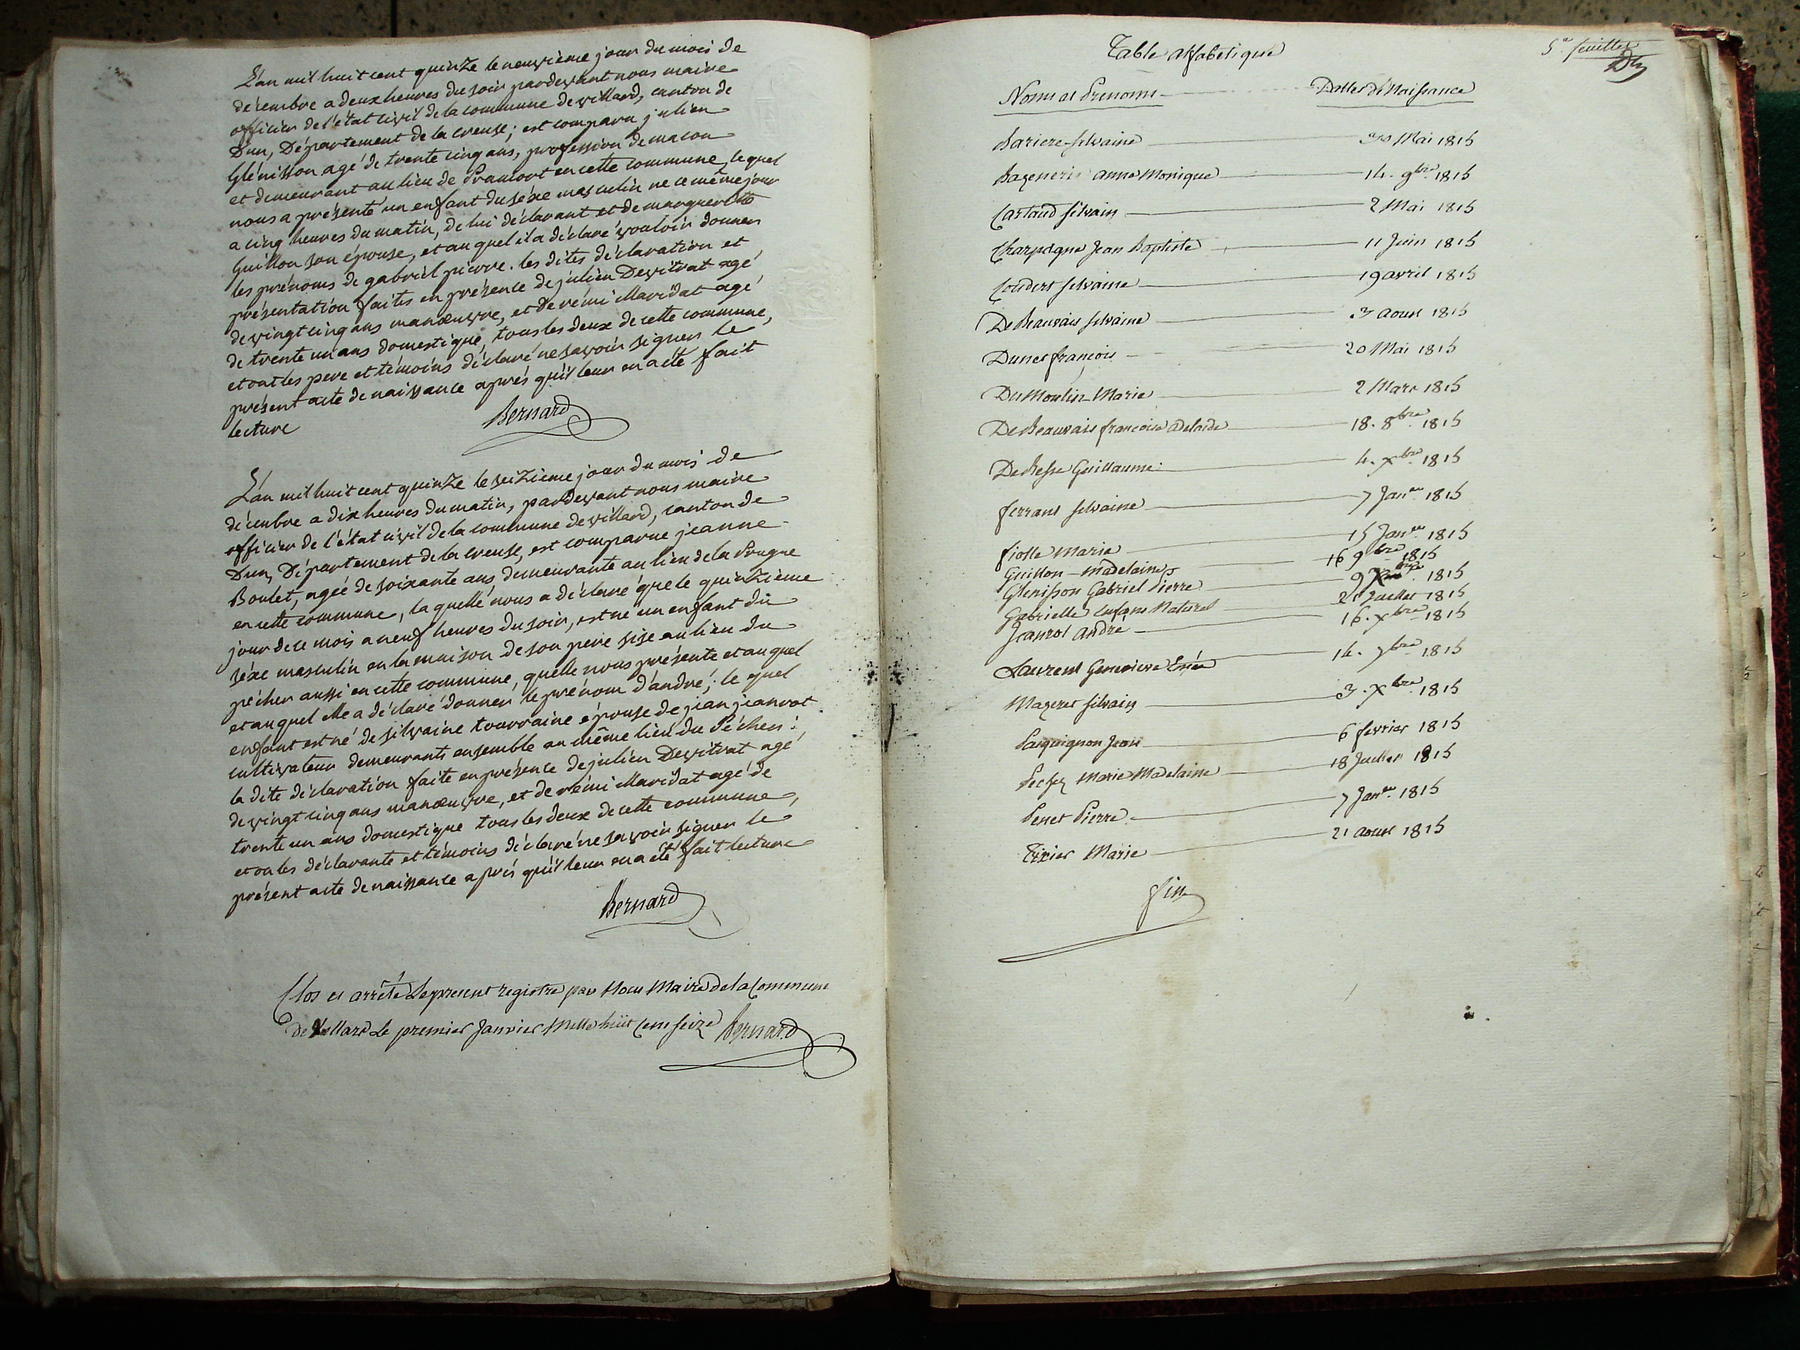 L'an mil huit cent quinze le neuvième jour du mois de
décembre a deux heures du soir pardevant nous maire
officier de l'état civil de la commune de villard, canton de
Dun, Département de la creuse; est comparu julien
Glénisson agé de trente cinq ans, profession de macon
et demeurant au lieu de Pramort en cette commune, le quel
nous a présenté un enfant du séxe masculin né ce même jour
a cinq heures du matin, de lui déclarant et de marguerite
Guillon son épouse, et au quel il a déclaré vouloir donner
les prénoms de gabriel pierre. les dites déclaration et
présentation faites en présence de julien Devitrat agé
de vingt cinq ans manœuvre, et de rémi Maridat agé
de trente un ans domestique, tous les deux de cette commune,
et ont les pere et témoins déclaré ne savoir signer le
présent acte de naissance aprés qu'il leur en a été fait
lecture
Bernard
L'an mil huit cent quinze le seizième jour du mois de
décembre a dix heures du matin, pardevant nous maire
officier de l'état civil de la commune de villard, canton de
Dun, Département de la creuse, est comparue jeanne
Boulet, agée de soixante ans demeurante au lieu de la Pougne
en cette commune, la quelle nous a déclaré que le quinzième
jour de ce mois a neuf heures du soir, est né un enfant du
séxe masculin en la maison de son pere sise au lieu du
pécher aussi en cette commune, qu'elle nous présente et au quel
et au quel elle a déclaré donner le prénom d'andré; le quel
enfant est né de silvaine tourraine épouse de jean jeanrot
cultivateur demeurants ensemble au même lieu du Pécher:
la dite déclaration faite en présence de julien Devitrat agé
de vingt cinq ans manœuvre, et de rémi Maridat agé de
trente un ans domestique tous les deux de cette commune,
et ont les déclarante et témoins déclaré ne savoir signer le
présent acte de naissance aprés qu'il leur en a été fait lecture
Bernard
Clos et arrêté le present registre par Nous Maire de la Commune
de Villard Le premier Janvier Mille huit Cent seize Bernard
5e feuillet
Table alfabetique
Noms et Prenoms Dattes de Naissance
Bariere silvaine 30 Mai 1815
Bazeneris anne Monique 14. 9bre 1815
Cartaud silvain 2 Mai 1815
Charpagne Jean Baptiste 11 Juin 1815
Coudert silvaine 19 avril 1815
De Beauvais silvaine 3 aout 1815
Dunet françois 20 Mai 1815
Du Moulin Marie 2 Mars 1815
De Beauvais francoise adelaide 18. 8bre 1815
De Besse Guillaume 4. Xbre 1815
ferrant silvaine 7 Janer 1815
fiolle Marie 15 Janer 1815
Guillon Madelaine 16 9bre 1815
Glenisson Gabriel Pierre 9 Xbre 1815
Gabrielle Enfant Naturel 21 Juillet 1815
Jeanrot André 16. Xbre 1815
Laurent Genevieve 14. 7bre 1815
Mazeret silvain 3. Xbre 1815
Pasquignon Jean 6 fevrier 1815
Marie Madelaine 18 Juillet 1815
Penet Pierre 7 Janer 1815
Tixier Marie 21 aout 1815
fin